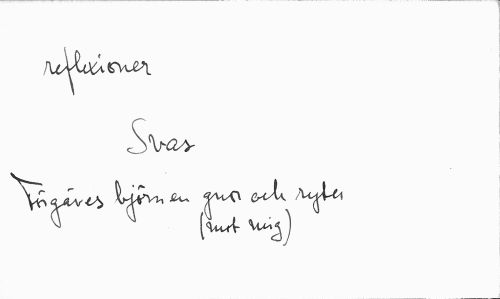 reflexioner
Svar
Förgäves björnen gnor och ryter
(mot mig)